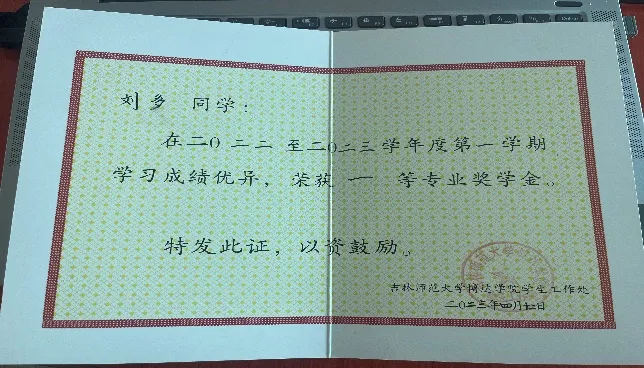 刘多 同学:
在二〇二二至二〇二三学年度第一学期
学习成绩优异,荣获 一 等专业奖学金。
特发此证,以资鼓励。
吉林师范大学博达学院学生工作处
二〇二三年四月